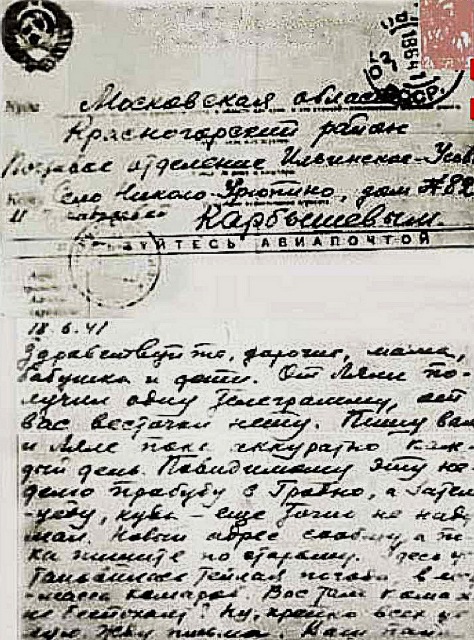 Московская область
Красногорский район
отделение Ильинское-Усов
Село Николо-Урюпино, дом №88
Карбышевым.
УЙТЕСЬ АВИАПОЧТОЙ
18.6.41
Здравствуйте, дорогие, мама,
бабушка и дети. От Ляли по-
лучил одну телеграмму, от
вас весточки нету. Пишу вам
и Ляле пока аккуратно каж-
дый день. Повидимому эту не-
долго пробуду в Гродно, а затем
уеду, куда еще точно не
адрес сообщу, а
ка пишите по старому. Здесь у
теплая погода, в
масса комаров. Вас там комар
не беспокоят? Ну, крепко всех
Жду письма. Ваш папа